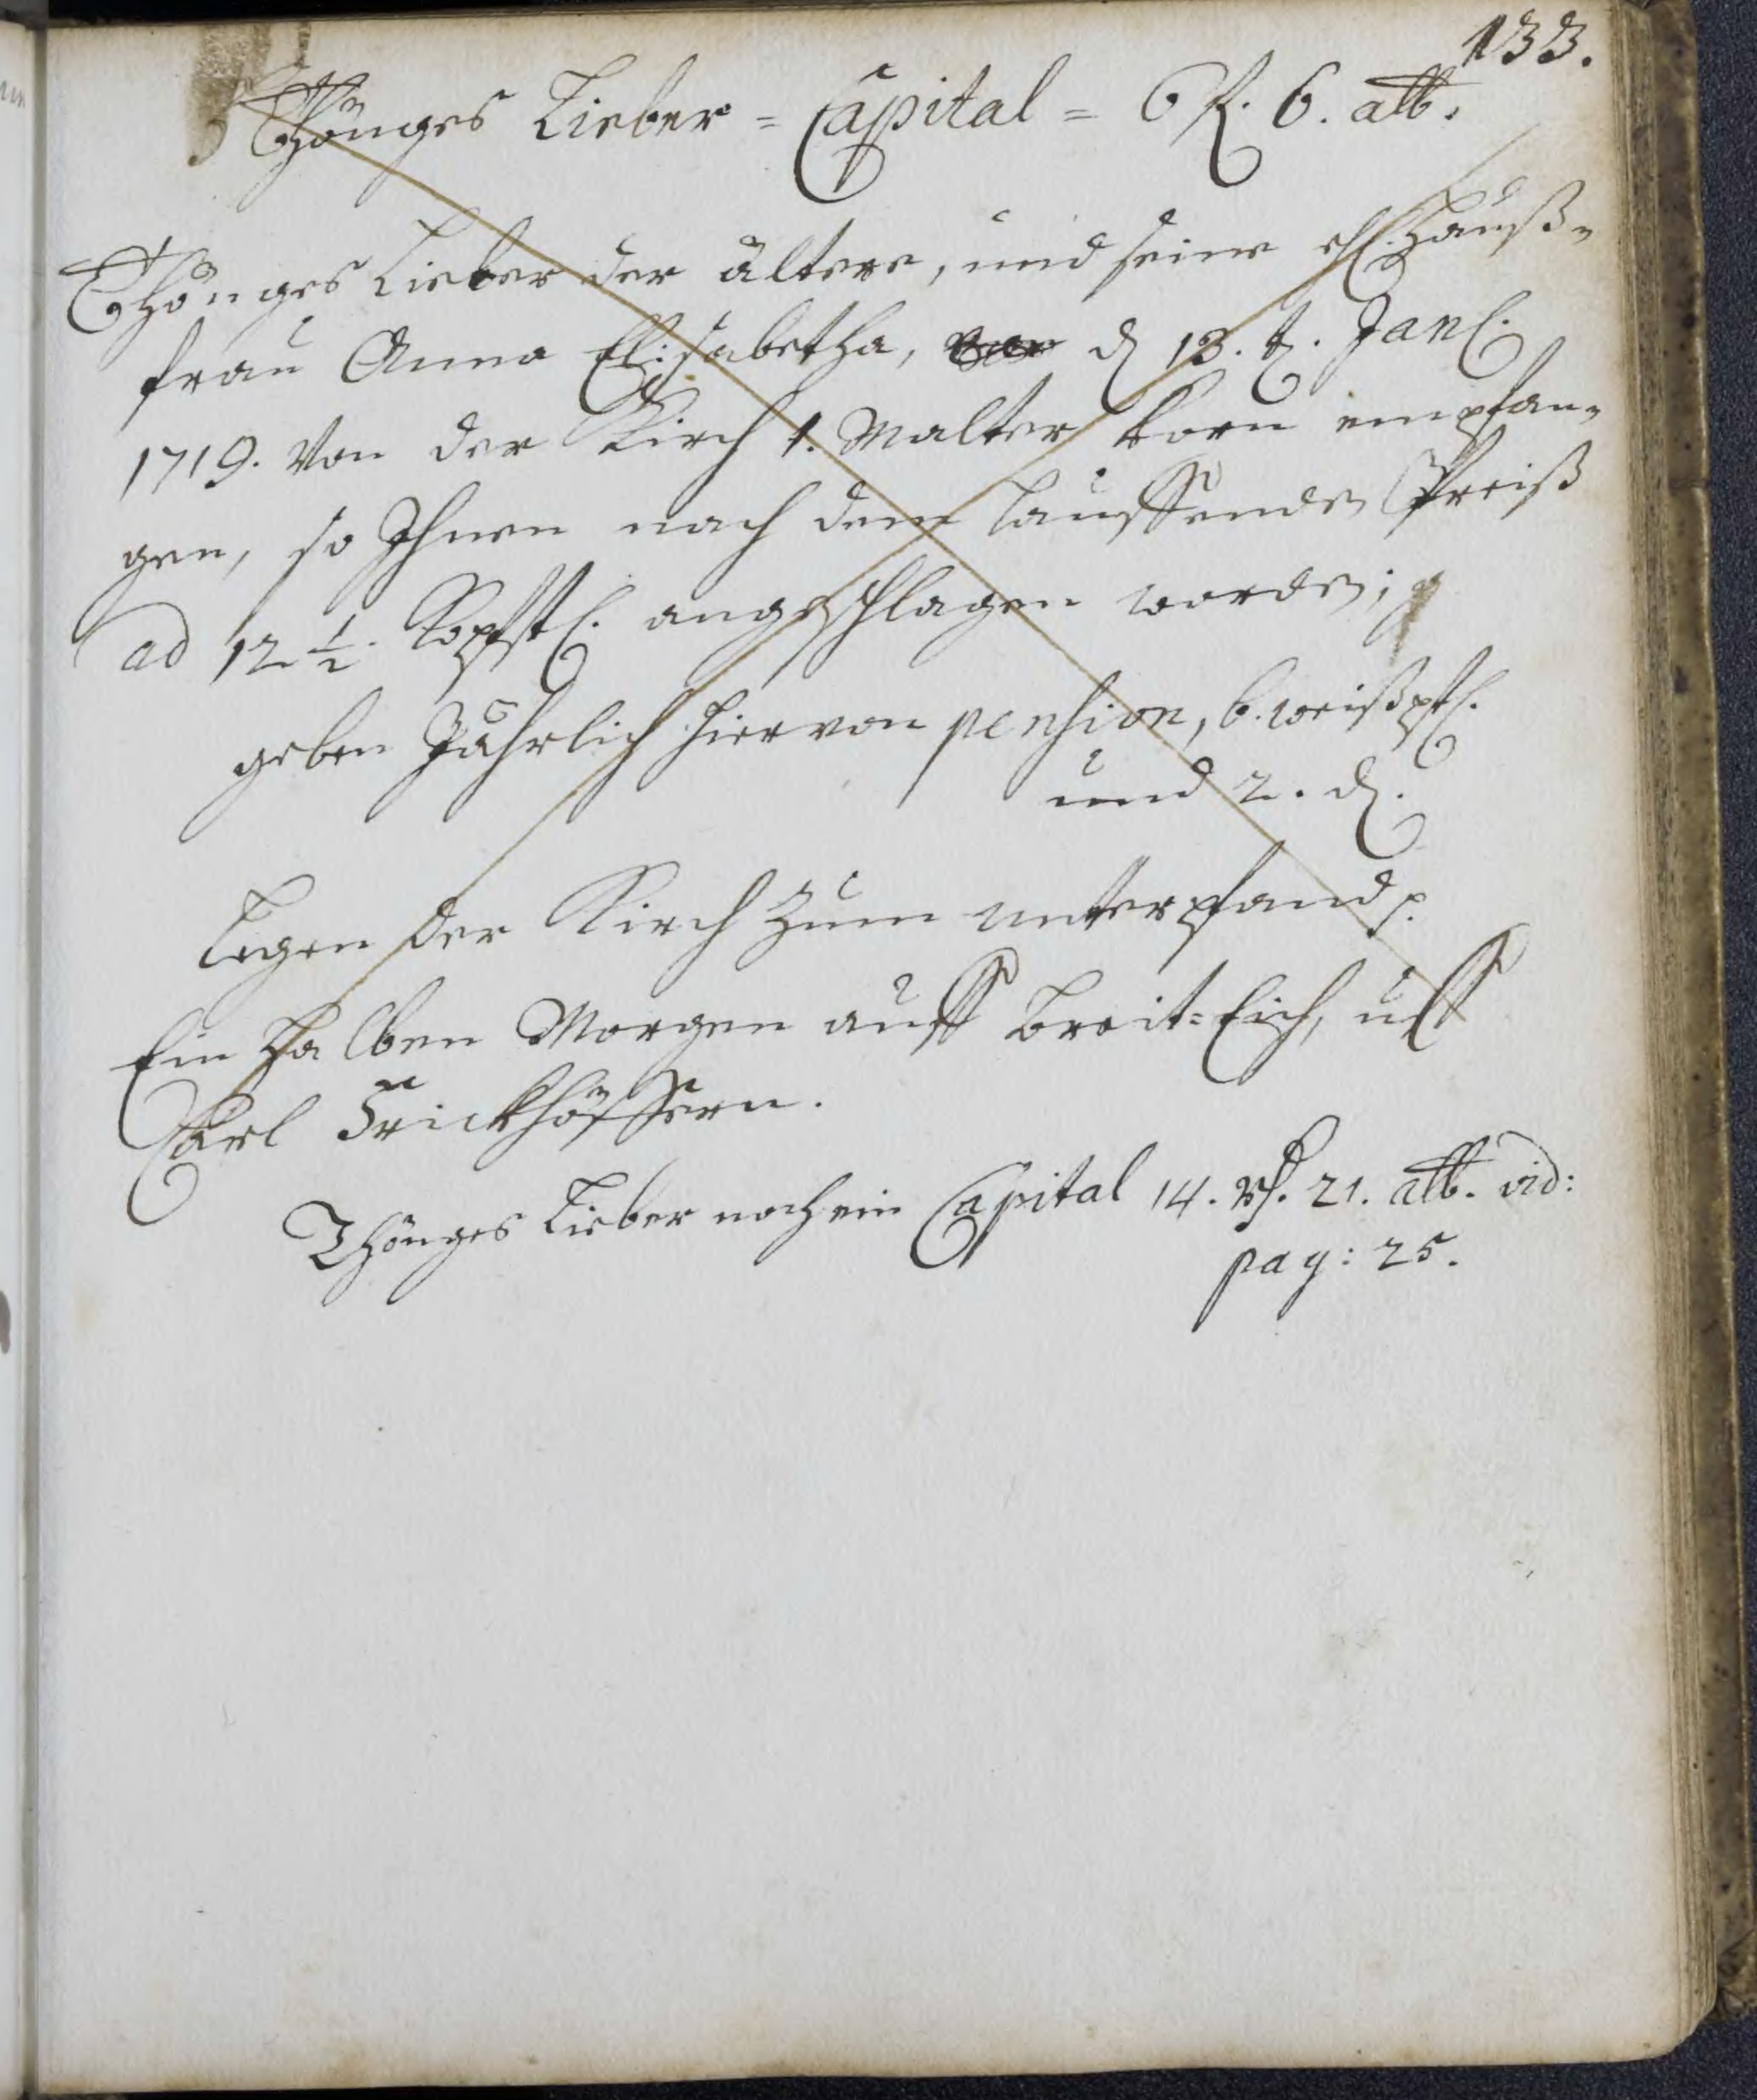 133.
Thönges Lieber = Capital = 6 f. 6. alb.
Thönges Lieber der ältere, und seine ehl. Hauß-
frau Anna Elisabetha, d 13. t. Janl.
1719. Von der Kirch 1. Malter Korn empfan-
gen, so Ihnen nach dem lauffenden Preiß
ad 12 1/2. Kopfstl. angeschlagen worden;
geben Jährlich hiervon pension, 6. weißpfl.
und 2. d.
Legen der Kirch zum unterpfand p.
Ein Halben Morgen auff Breit=Eich, uff
Carl Frickhöffern.
Thönges Lieber noch ein Capital 14. rf. 21. alb. vid:
pag: 25.